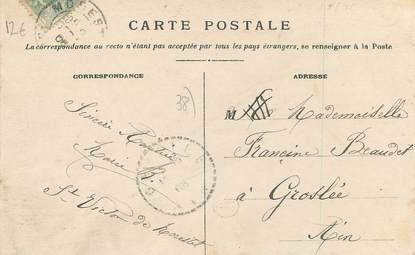 12€
CARTE POSTALE
La correspondance au recto n'étant pas acceptée par tous les pays étrangers, se renseigner à la Poste
CORRESPONDANCE
ADRESSE
38)
Sincère Amitié
Marie B.
St Victor de
M Mademoiselle
Francine Beaudet
à Groslée
Ain